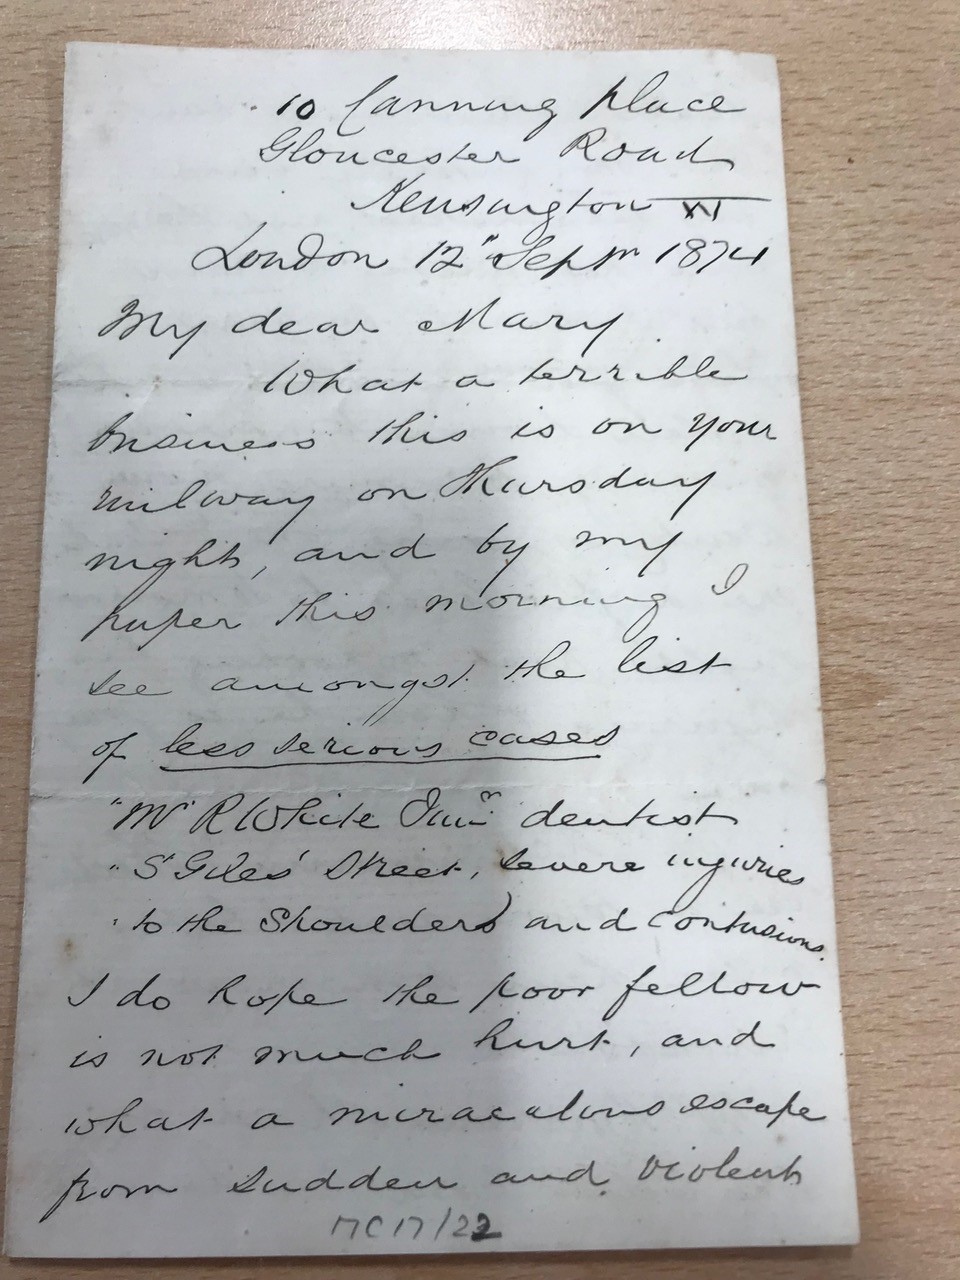 10 Canning place
Gloucester Road
Kensington W
London 12" Septr 1874
My dear Mary
What a terrible
business this is on your
railway on Thursday
night, and by my
paper this morning I
see amongst the list
of less serious cases
"Mr R White Junr dentist
"St Giles' Street, severe injuries
to the Shoulders and contusions.
I do hope the poor fellow
is not much hurt, and
what a miraculous escape
from sudden and violent
MC17/22